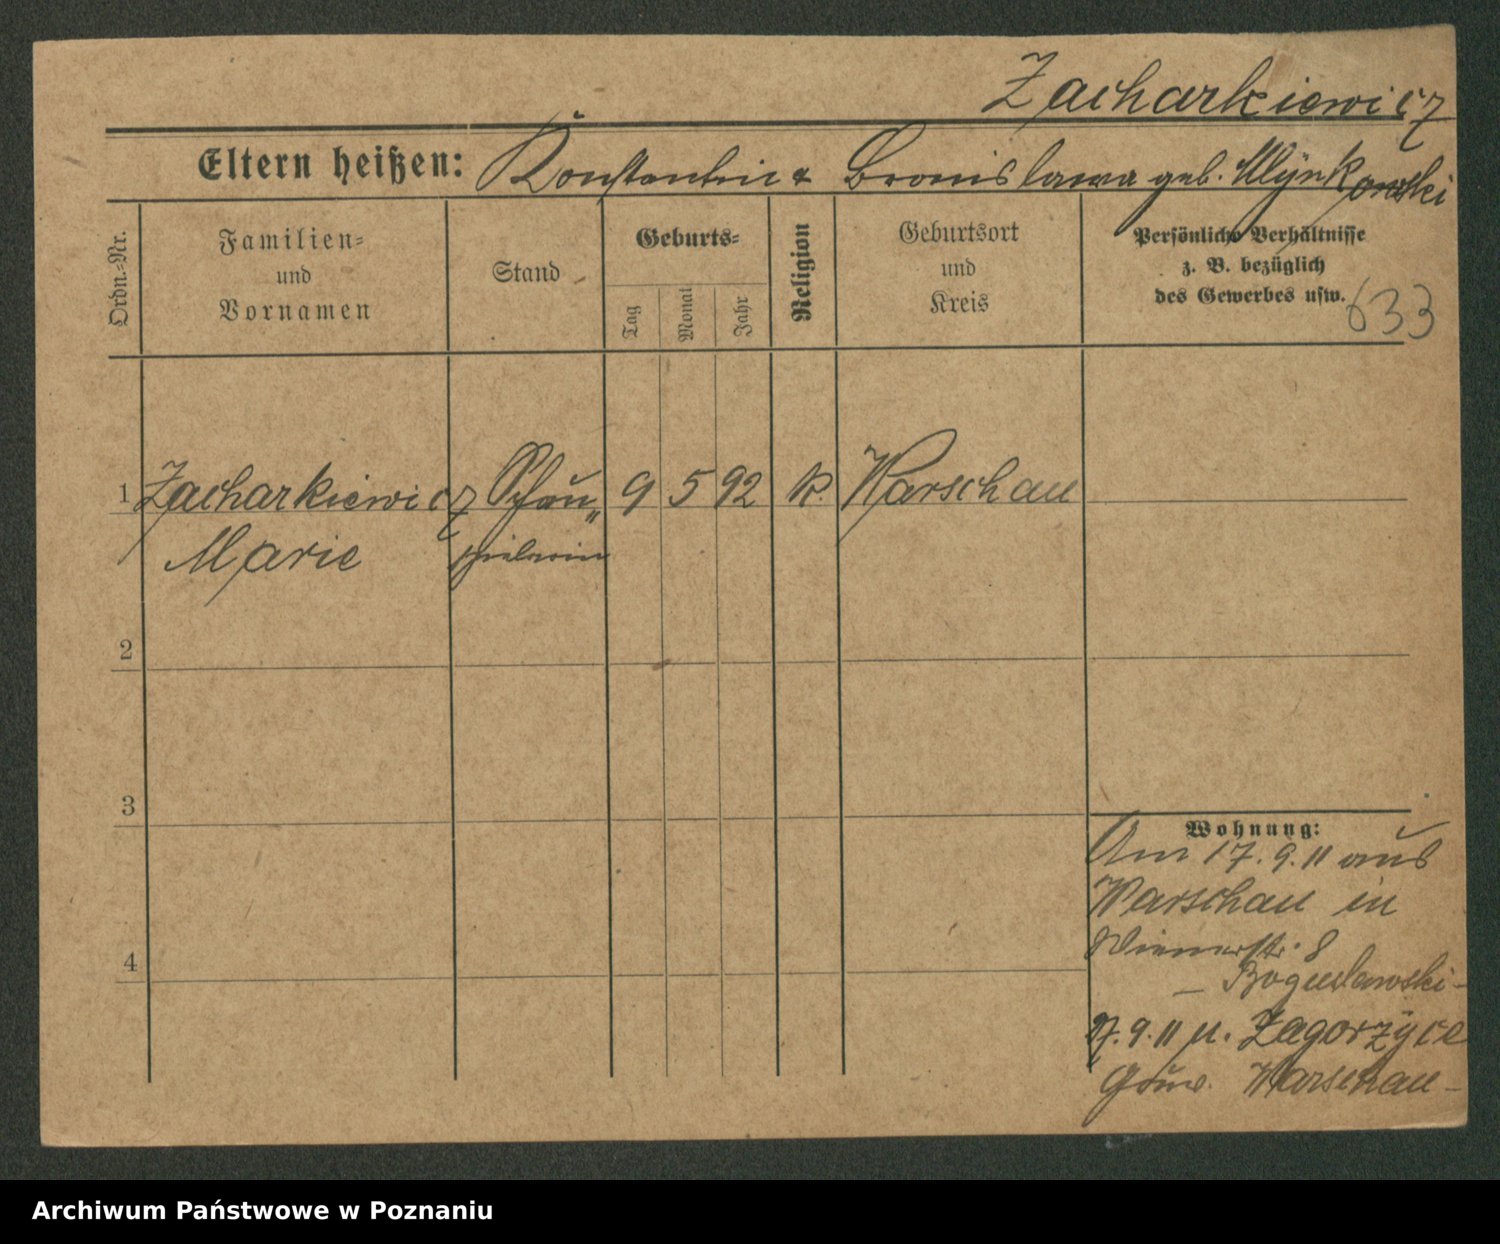 Zacharkiewicz
Eltern heißen: Konstantin & Bronislawa geb. Mlynkowski
Ordn.=Nr.
Familien=
und
Vornamen
Stand
Geburts=
Tag
Monat
Jahr
Religion
Geburtsort
und
Kreis
Persönliche Verhältnisse
z. B. bezüglich
des Gewerbes usw.
633
1 Zacharkiewicz Schau„ 9 5 92 k. Warschau
Marie spielerin
2
3
4
Wohnung:
Am 17.9.11 aus
Warschau in
Wienerstr. 8
— Boguslawski —
27.9.11 n. Zagorzyce
Gouv. Warschau —
Archiwum Państwowe w Poznaniu